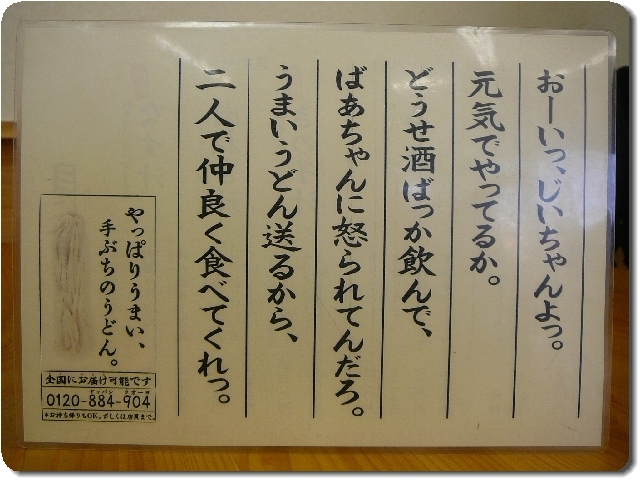 おーいっ、じいちゃんよっ。
元気でやってるか。
どうせ酒ばっか飲んで、
ばあちゃんに怒られてんだろ。
うまいうどん送るから、
二人で仲良く食べてくれっ。
やっぱりうまい、
手ぶちのうどん。
全国にお届け可能です
0120-884-904
*お持ち帰りもOK。詳しくは店員まで。